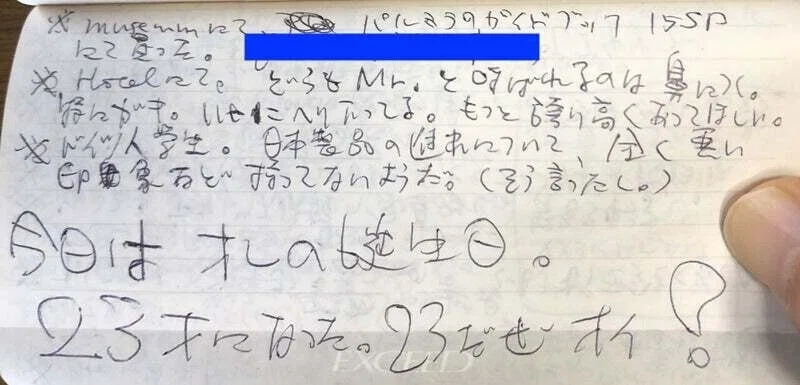 ※ museumにて、パルミラのガイドブック 15SP
にて買った。
※ Hotelにて。どうもMr.と呼ばれるのは鼻につく。
特にガキ。いやにへりくだってる。もっと誇り高くあってほしい。
※ ドイツ人学生。日本製品のについて、全く悪い
印象など持ってないようだ。(そう言ったし。)
今日はオレの誕生日。
23才になった。23だぜオイ!
EXCEED